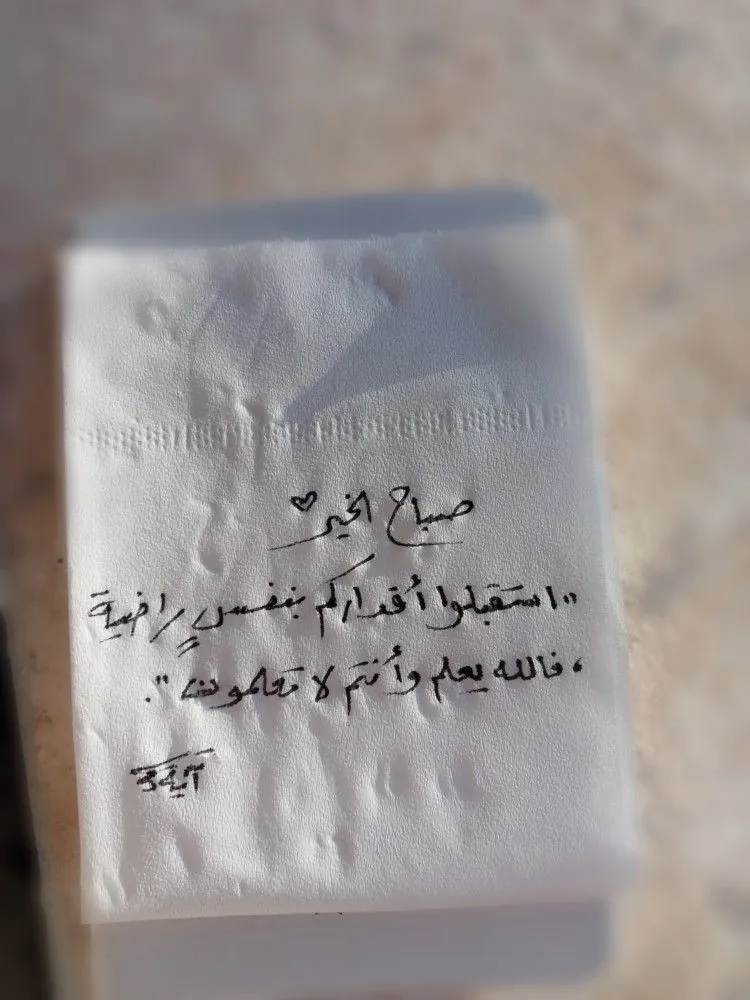 صباح الخير ♡
"استقبلوا أقداركم بنفسٍ راضية
، فالله يعلم وأنتم لا تعلمون".
آية